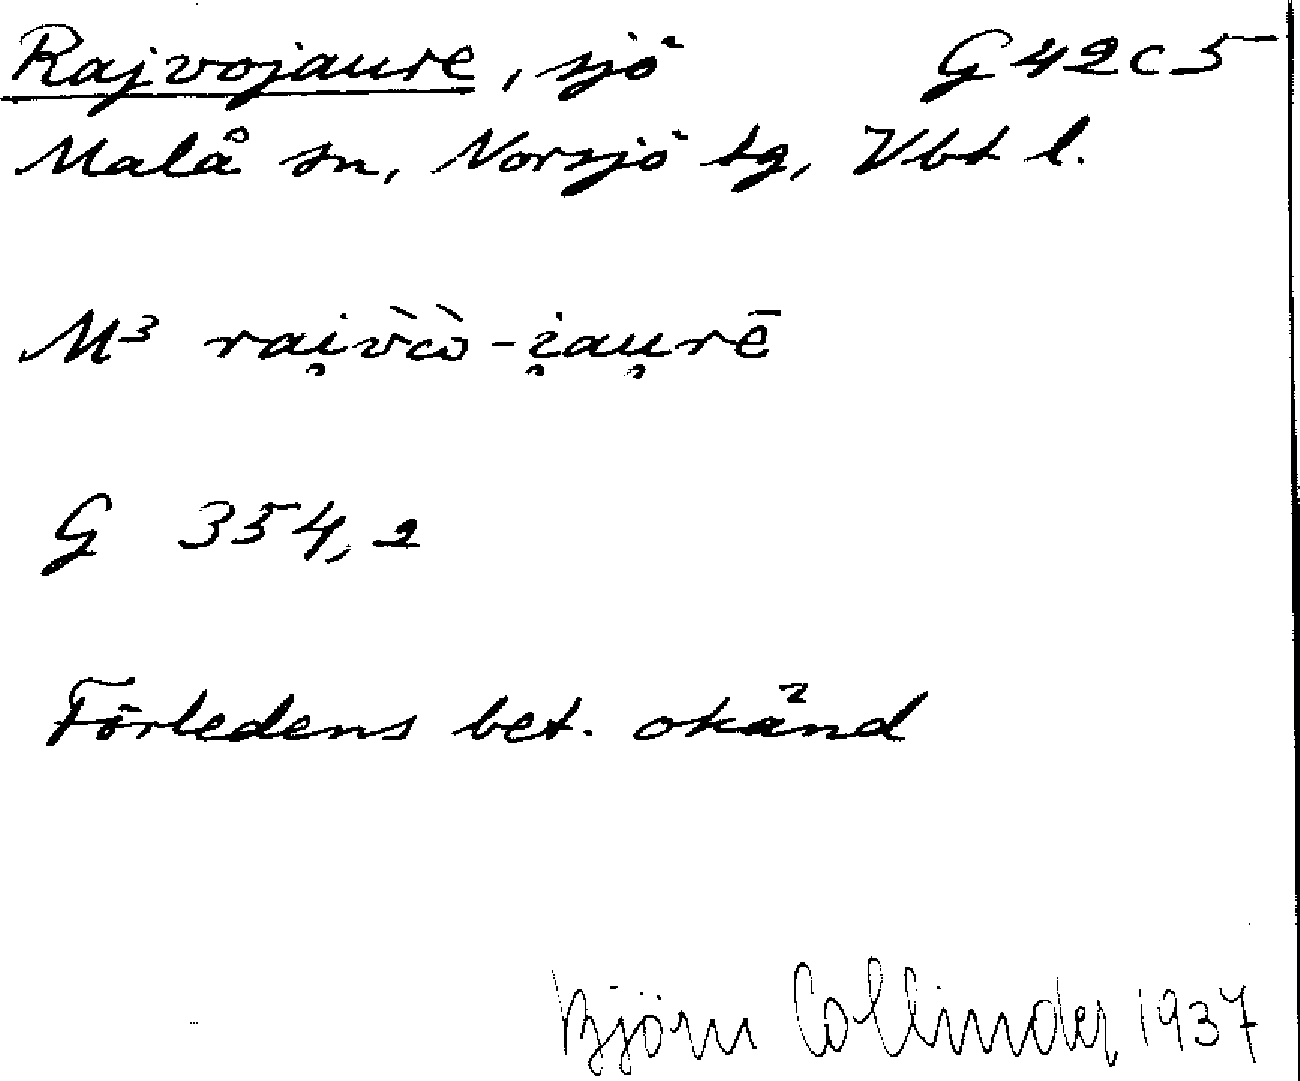 Rajvojaure, sjö G 42 c 5
Malå sn, Norsjö tg, Vbt l.
M³ rai̯v̀cò-i̯au̯rē
G 354,2
Förledens bet. okänd
Björn Collinder 1937